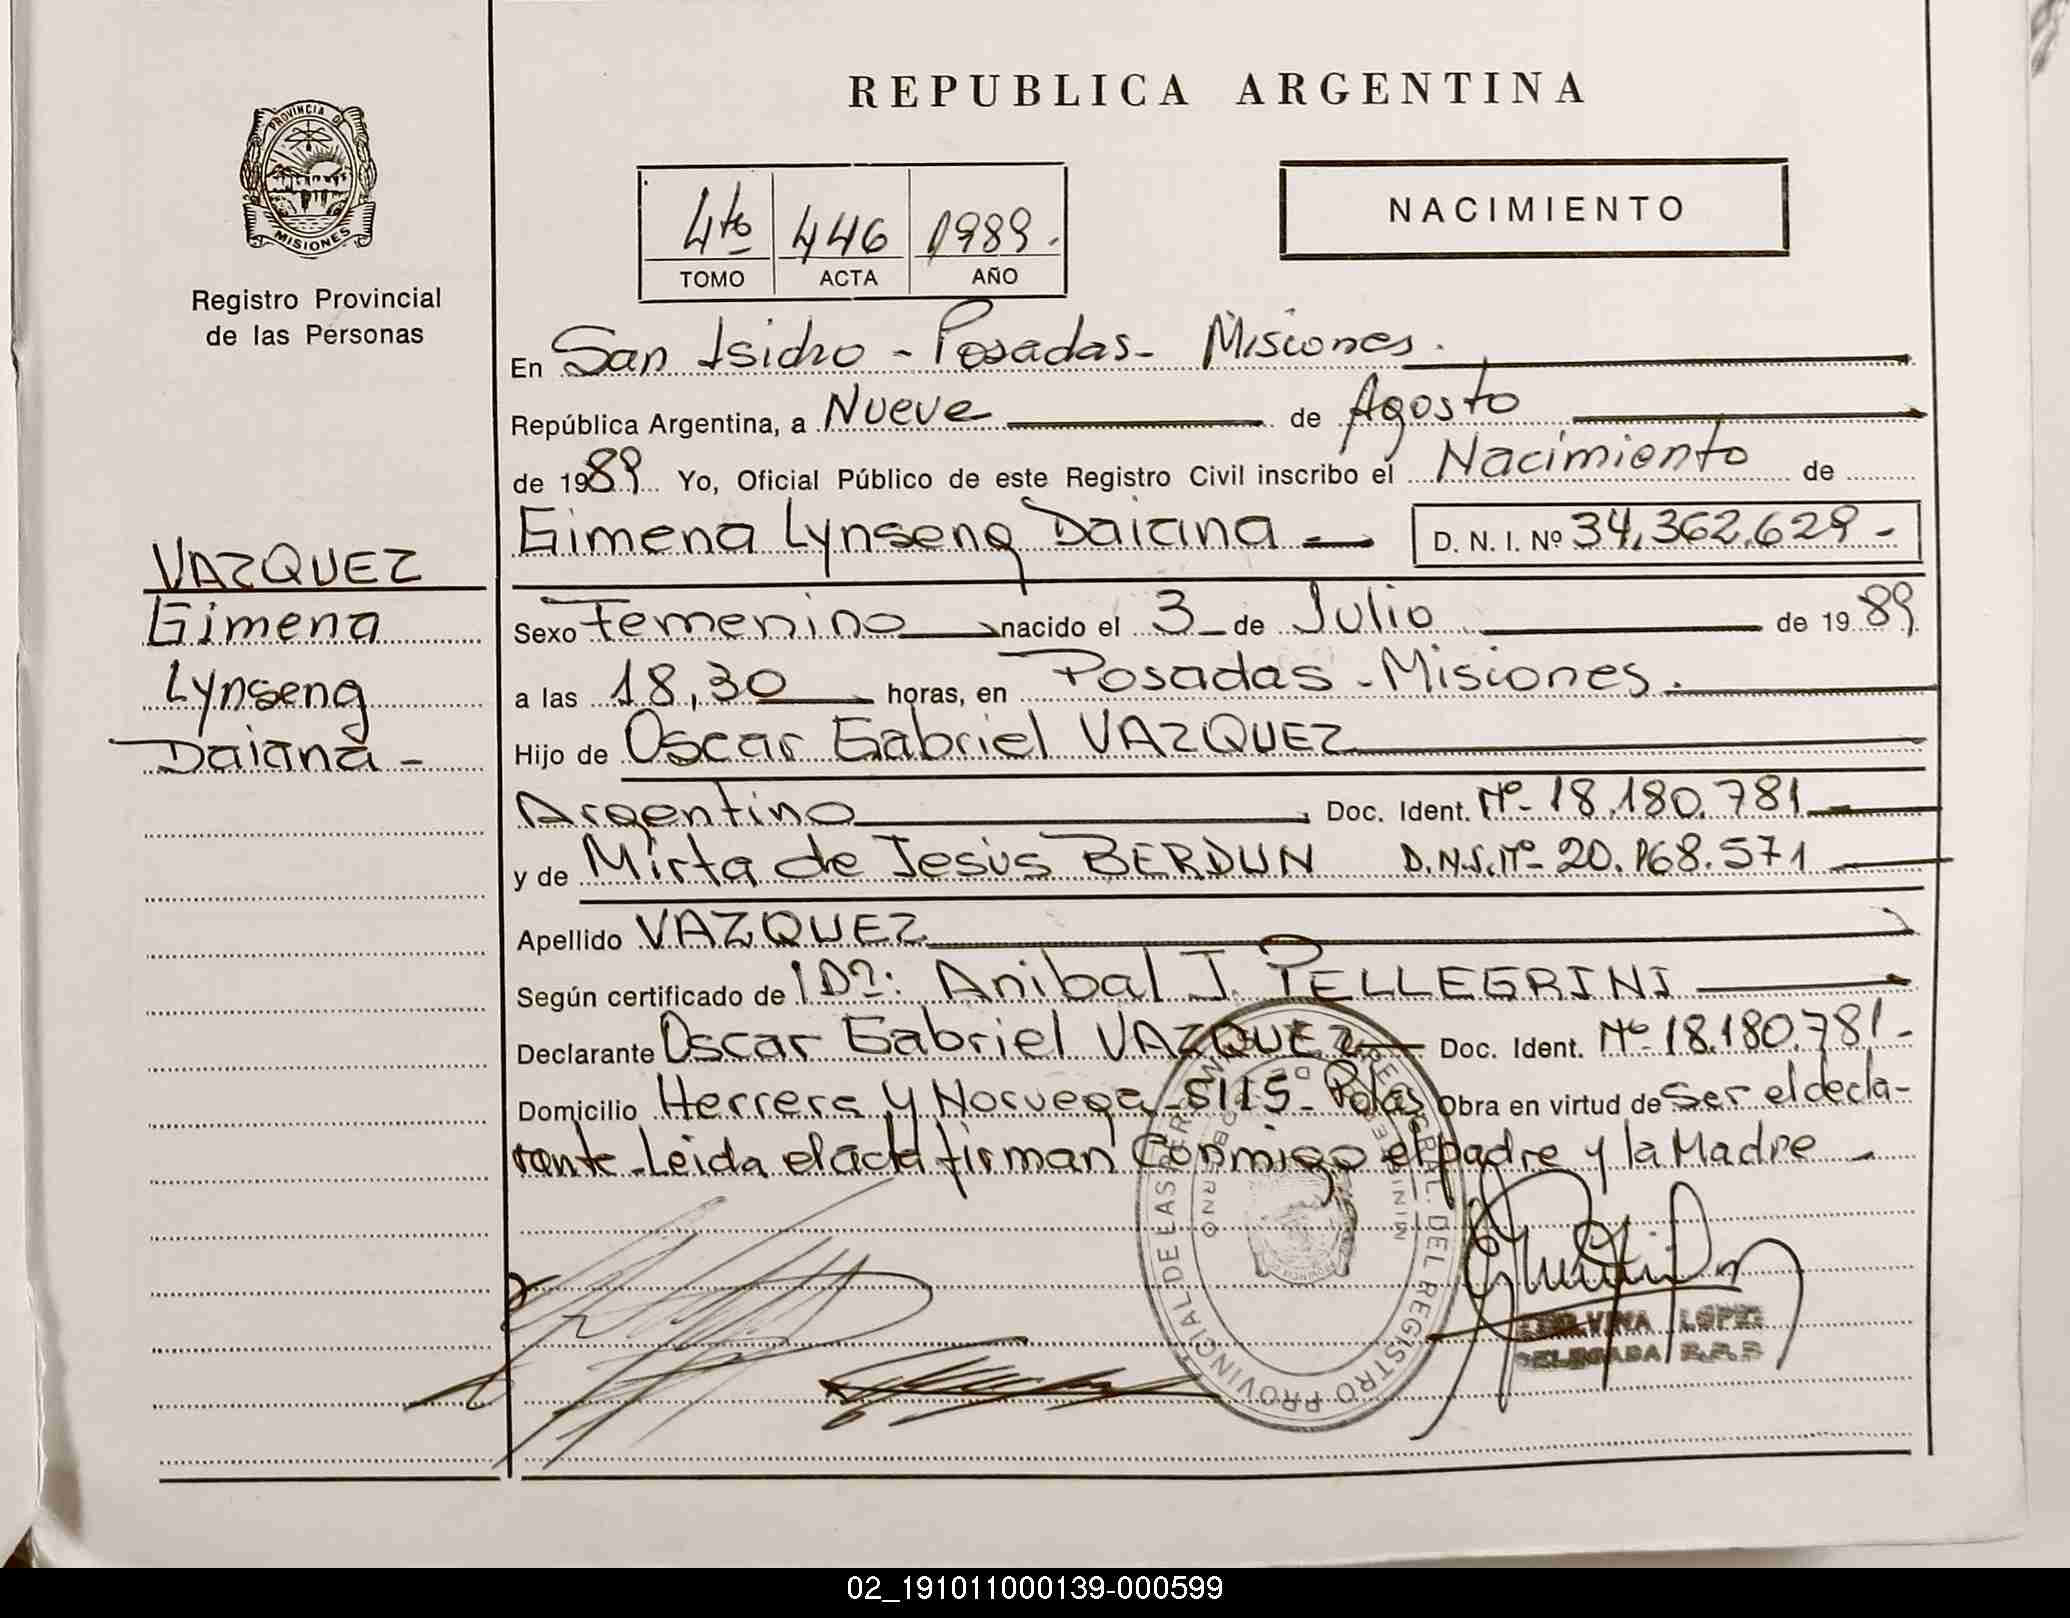 REPUBLICA ARGENTINA
PROVINCIA DE
MISIONES
Registro Provincial
de las Personas
4to 446 1989.
TOMO ACTA AÑO
NACIMIENTO
En San Isidro - Posadas - Misiones.
República Argentina, a Nueve de Agosto
de 1989 Yo, Oficial Público de este Registro Civil inscribo el Nacimiento de
Gimena Lynseng Daiana - D. N. I. Nº 34.362.629 -
VAZQUEZ
Gimena
Lynseng
Daiana -
Sexo Femenino nacido el 3 de Julio de 1989
a las 18,30 horas, en Posadas - Misiones.
Hijo de Oscar Gabriel VAZQUEZ
Argentino Doc. Ident. Nº 18.180.781
y de Mirta de Jesús BERDUN D.N.I. Nº 20.168.571
Apellido VAZQUEZ
Según certificado de Anibal J. PELLEGRINI
Declarante Oscar Gabriel VAZQUEZ Doc. Ident. Nº 18.180.781 -
Domicilio Herrera y Noruega - 5115 - Pdas Obra en virtud de ser el decla-
rante - Leida el acta firman Conmigo el padre y la Madre -
LOPEZ
DELEGADA R.P.P
02_191011000139-000599